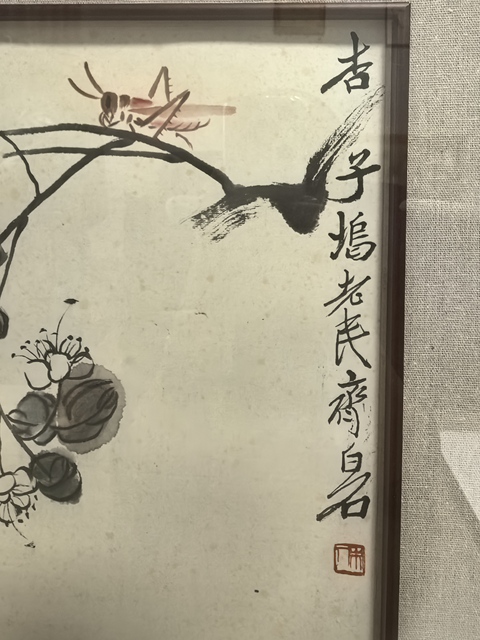 杏子塢老民齊白石
木人